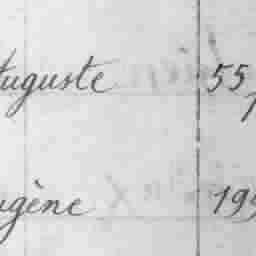 uguste 55
ugène 19